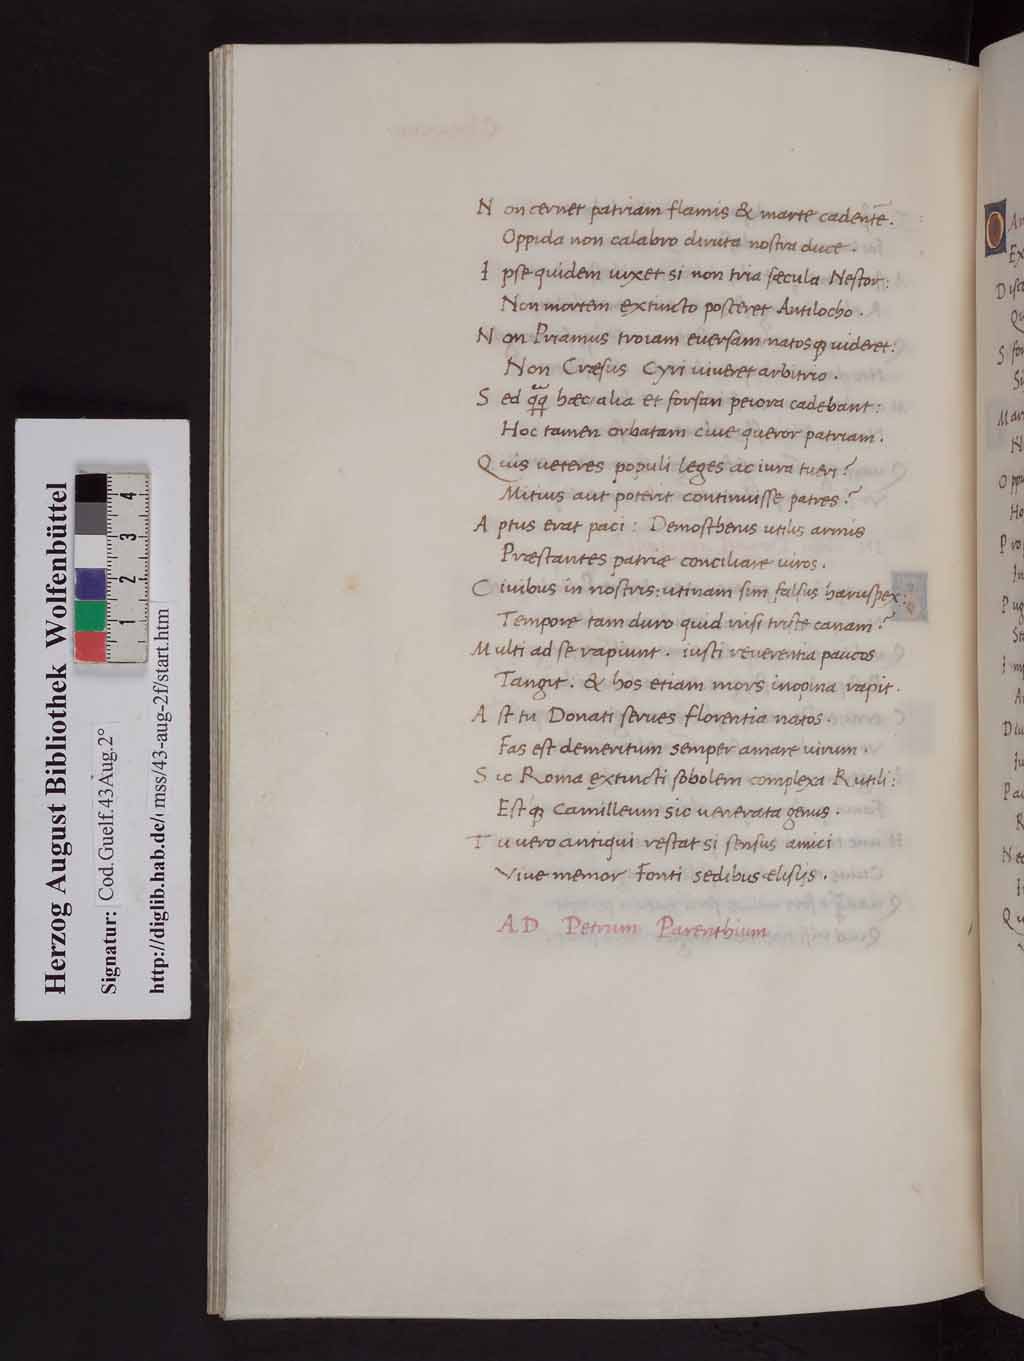 Non cernet patriam flamis & marte cadentē.
Oppida non calabro diruta nostra duce.
Ipse quidem uixet si non tria sæcula Nestor:
Non mortem extincto posceret Antilocho.
Non Priamus troiam euersam natosqꝫ uideret:
Non Cræsus Cyri uiueret arbitrio.
Sed qq̃ hæc alia et forsan peiora cadebant:
Hoc tamen orbatam ciue queror patriam.
Quis ueteres populi leges ac iura tueri?
Mitius aut poterit continuisse patres?
Aptus erat paci: Demosthenis utilis armis
Præstantes patriæ conciliare uiros.
Ciuibus in nostris: utinam sim falsus haruspex:
Tempore tam duro quid nisi triste canam?
Multi ad se rapiunt. iusti reuerentia paucos
Tangit. & hos etiam mors inopina rapit.
Ast tu Donati serues florentia natos.
Fas est demeritum semper amare uirum.
Sic Roma extincti sobolem complexa Rutili:
Estqꝫ Camilleum sic uenerata genus.
Tu uero antiqui restat si sensus amici
Viue memor Fonti sedibus elisijs.
AD Petrum Parenthium
Herzog August Bibliothek Wolfenbüttel
Signatur: Cod.Guelf.43Aug.2°
http://diglib.hab.de/mss/43-aug-2f/start.htm
1 2 3 4